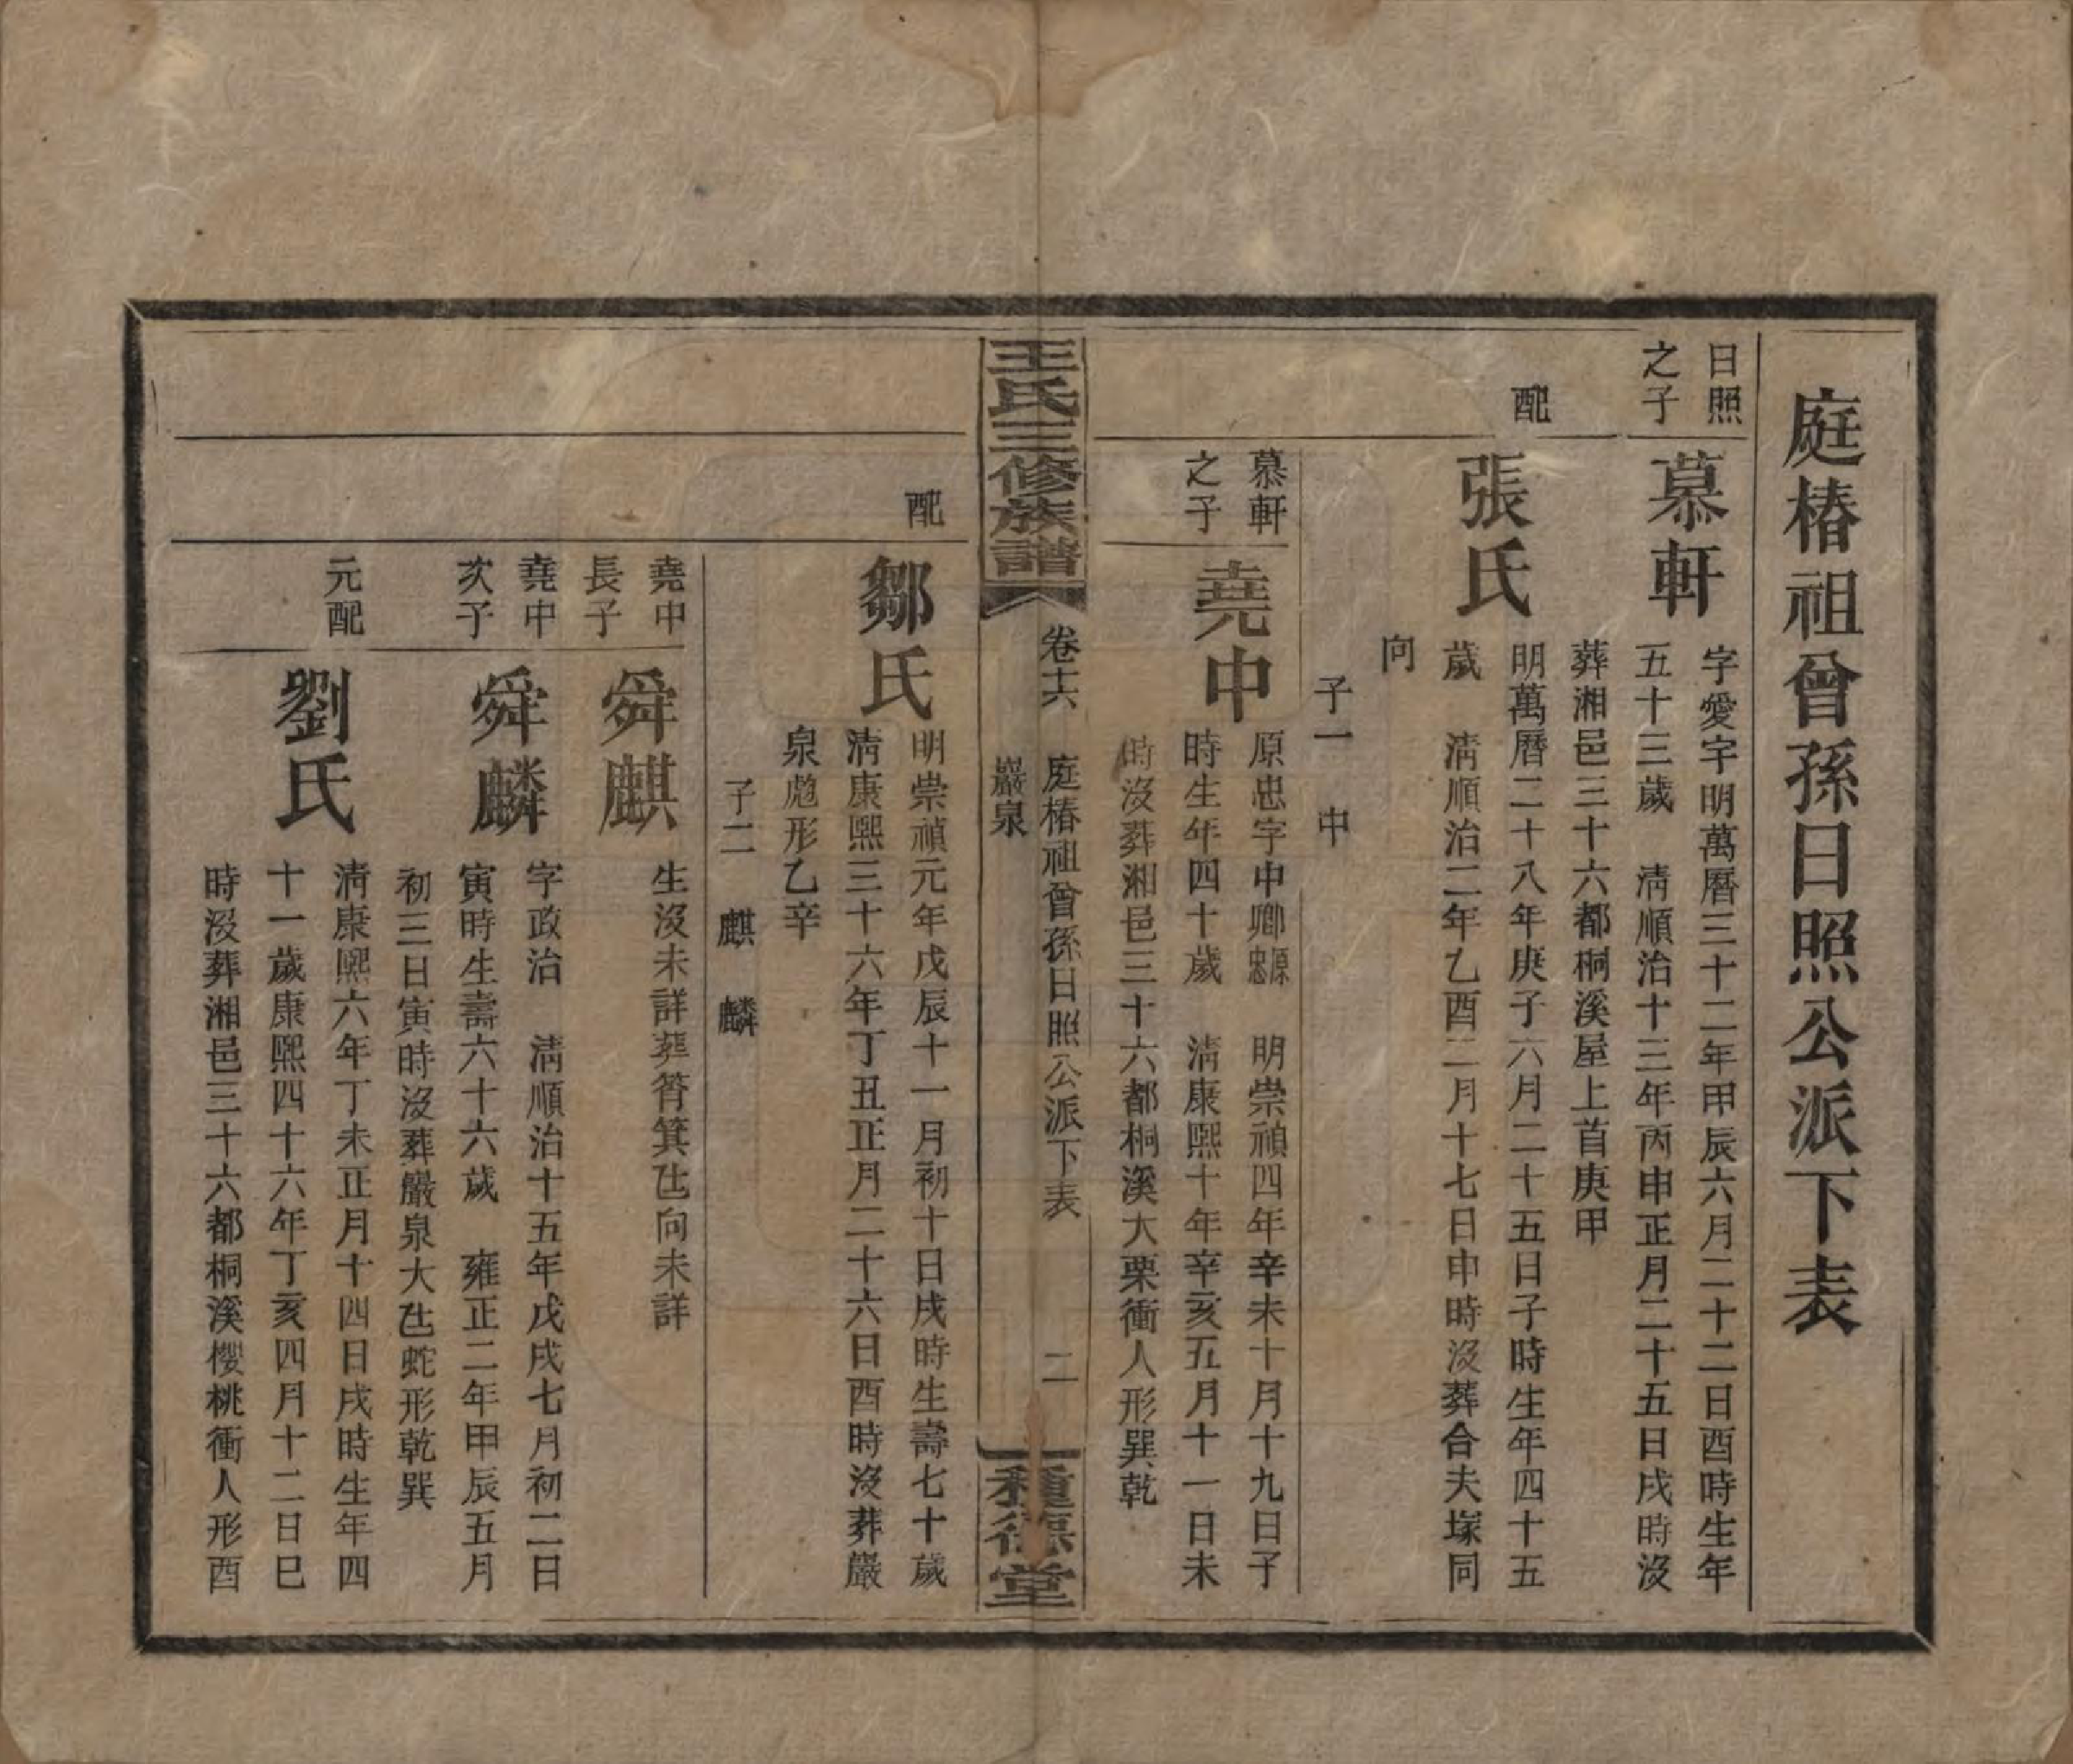 庭椿祖曾孫日照公派下表
日照
之子
慕軒
字愛宇明萬曆三十二年甲辰六月二十二日酉時生年
五十三歲　清順治十三年丙申正月二十五日戌時沒
葬湘邑三十六都桐溪屋上首庚甲
配
張氏
明萬曆二十八年庚子六月二十五日子時生年四十五
歲　清順治二年乙酉二月十七日申時沒葬合夫塚同
向
子一　中
慕軒
之子
堯中
原忠字中卿原忠　明崇禎四年辛未十月十九日子
時生年四十歲　清康熙十年辛亥五月十一日未
時沒葬湘邑三十六都桐溪大栗衝人形巽乾
王氏三修族譜
卷十六
庭椿祖曾孫日照公派下表
巖泉
二
種德堂
配
鄒氏
明崇禎元年戊辰十一月初十日戌時生壽七十歲
清康熙三十六年丁丑正月二十六日酉時沒葬巖
泉彪形乙辛
子二　麒　麟
堯中
長子
舜麒
生沒未詳葬筲箕𠙚向未詳
堯中
次子
舜麟
字政治　清順治十五年戊戌七月初二日
寅時生壽六十六歲　雍正二年甲辰五月
初三日寅時沒葬巖泉大𠙚蛇形乾巽
元配
劉氏
清康熙六年丁未正月十四日戌時生年四
十一歲康熙四十六年丁亥四月十二日巳
時沒葬湘邑三十六都桐溪櫻桃衝人形酉